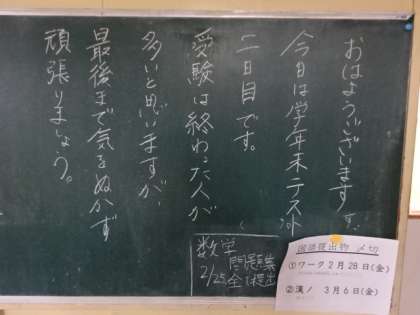 おはようございます。
今日は学年末テスト
二日目です。
受験は終わった人が
多いと思いますが、
最後まで気をぬかず
頑張りましょう。
数学
2/25 問題集
全て提出
国語提出物 〆切
①ワーク 2月28日(金)
②漢ノ 3月6日(金)